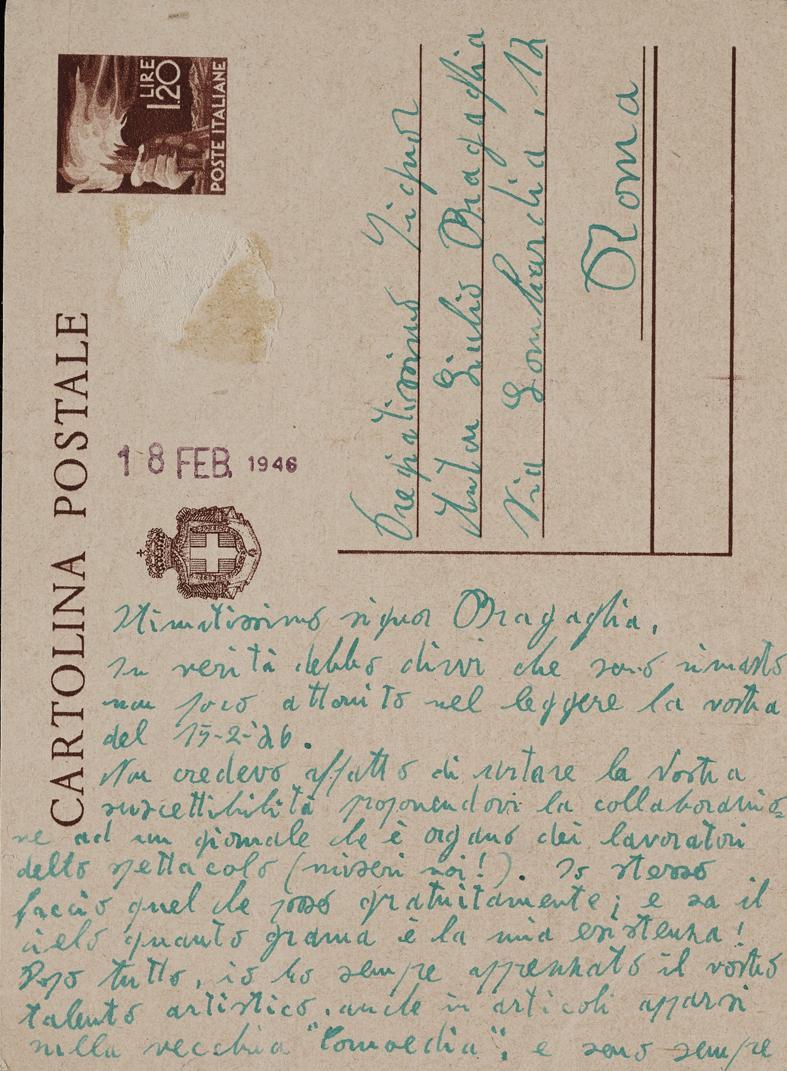 CARTOLINA POSTALE
LIRE
1.20
POSTE ITALIANE
18 FEB. 1946
Pregiatissimo Signor
Anton Giulio Bragaglia
Via Lombardia, 12
Roma
Stimatissimo signor Bragaglia,
In verità debbo dirvi che sono rimasto
non poco attonito nel leggere la vostra
del
Non credevo affatto di urtare la Vostra
suscettibilità proponendovi la collaborazio=
ne ad un giornale che è organo dei lavoratori
dello spettacolo (miseri noi!). Io stesso
faccio quel che posso gratuitamente; e sa il
cielo quanto grama è la mia esistenza!
Dopo tutto, io ho sempre apprezzato il vostro
talento artistico, anche in articoli apparsi
nella vecchia "Comoedia", e sono sempre